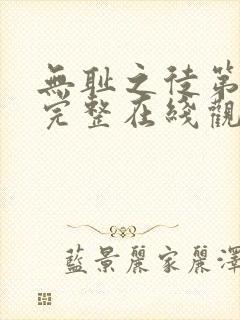 無耻之徒第
完整在綫觀
藍景麗家麗澤